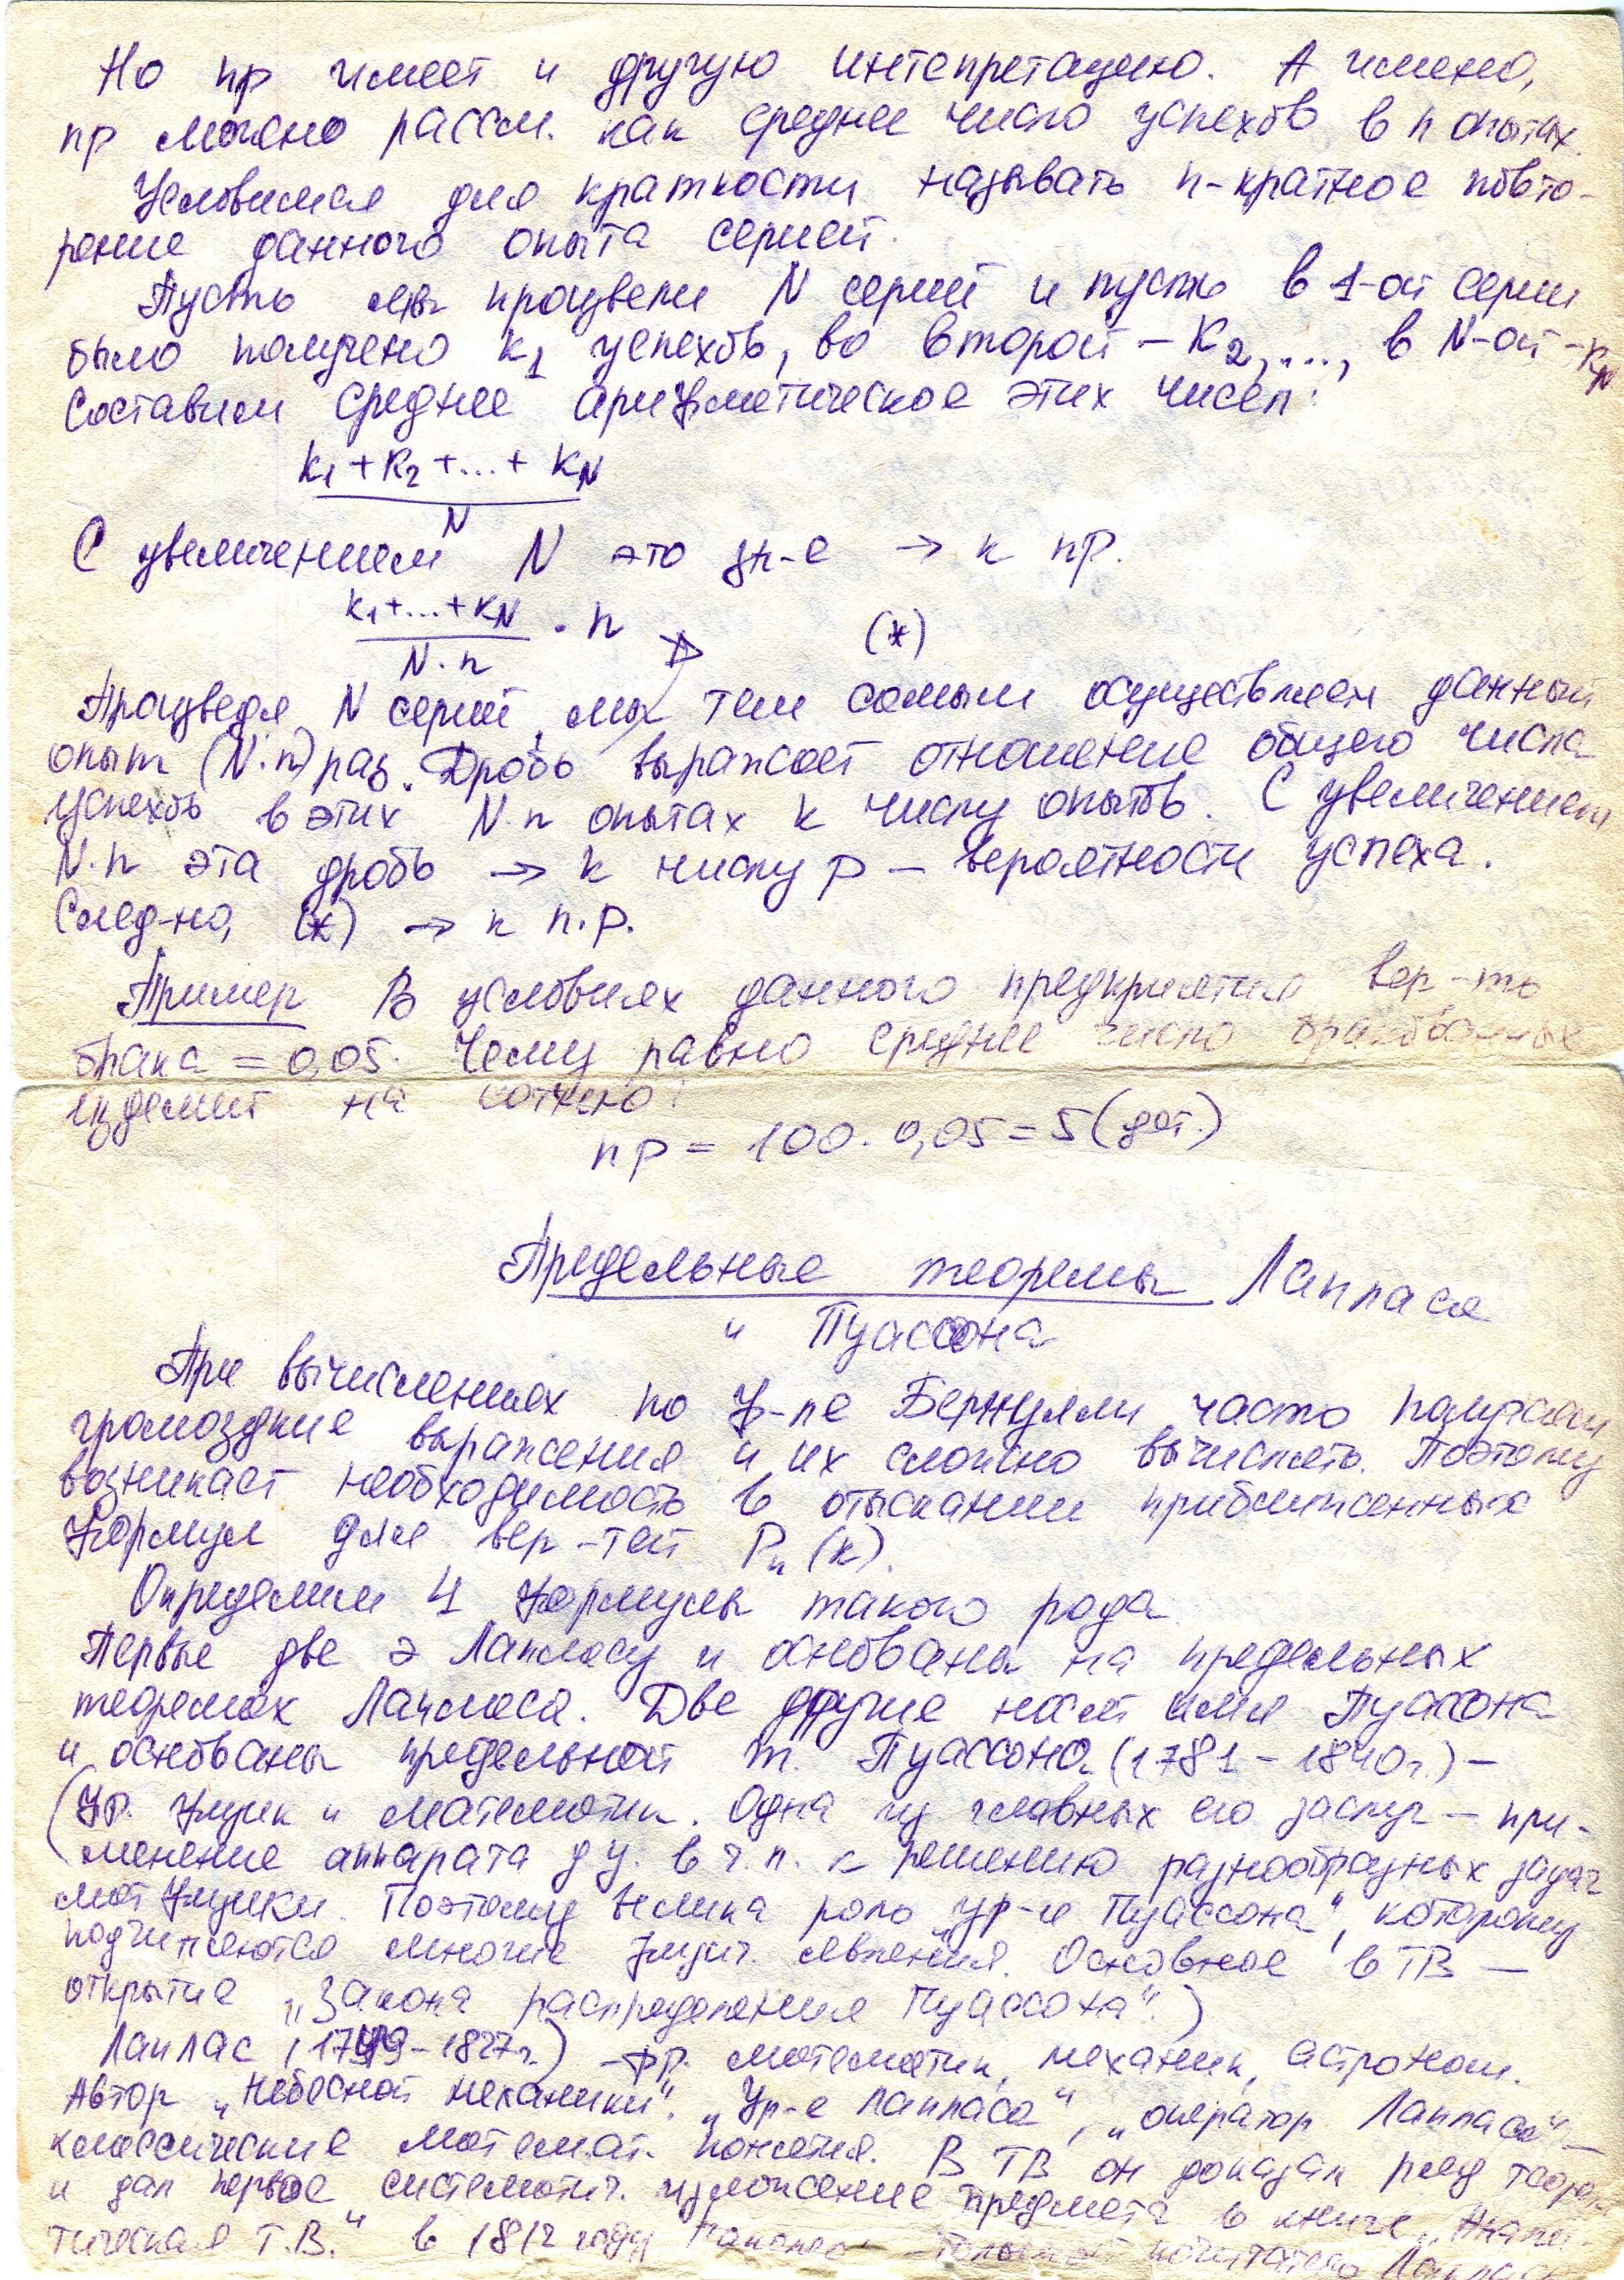 Но np имеет и другую интепретацию. А имено,
np можно рассм. как среднее число успехов в n опытах.
Условимся для краткости называть n-кратное повто-
рение данного опыта серией.
Пусть мы произвели N серий и пусть в 1-ой серии
было получено k₁ успехов, во второй – k₂, ..., в N-ой – k_N
Составим среднее арифметическое этих чисел:
k₁ + k₂ + ... + k_N
N
С увеличением N это зн-е → к np.
k₁ + ... + k_N
N·n · n (*)
Произведя N серий, мы тем самым осуществляем данный
опыт (N·n) раз. Дробь выражает отношение общего числа
успехов в этих N·n опытах к числу опытов. С увеличением
N·n эта дробь → к числу p – вероятности успеха.
След-но, (*) → к n.p.
Пример В условиях данного предприятия вер-ть
брака = 0,05. Чему равно среднее число бракованных
изделий на сотню?
np = 100 · 0,05 = 5 (дет.)
Предельные теоремы Лапласа
и Пуассона
При вычислениях по ф-ле Бернулли часто получаем
громоздкие выражения и их сложно вычислять. Поэтому
возникает необходимость в отыскании приближенных
формул для вер-тей Pₙ(k).
Определим 4 формулы такого рода
Первые две э Лапласу и основаны на предельных
теоремах Лапласа. Две другие носят имя Пуассона
и основаны предельной т. Пуассона (1781 – 1840г.) –
(фр. физик и математик. Одна из главных его заслуг – при-
менение аппарата ду. в ч.п. к решению разнообразных задач
мат физики. Поэтому велика роль „ур-я Пуассона“, которому
подчиняются многие физич. явления. Основное в ТВ –
открытие „Закона распределения Пуассона“.)
Лаплас (1749 – 1827г.) – фр. математик, механик, астроном.
Автор „Небесной механики“. „Ур-е Лапласа“, „оператор Лапласа“ –
классические математ. понятия. В ТВ он доказал ряд теорем
и дал первое системтич. изложение предмета в книге „Анали-
тическая Т.В.“ в 1812 году почитатель Лапласа